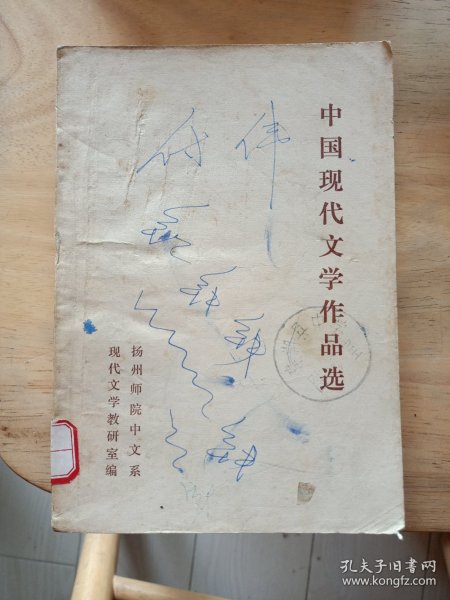 中国现代文学作品选
扬州师院中文系
现代文学教研室编
伟
付
孔夫子旧书网
www.kongfz.com